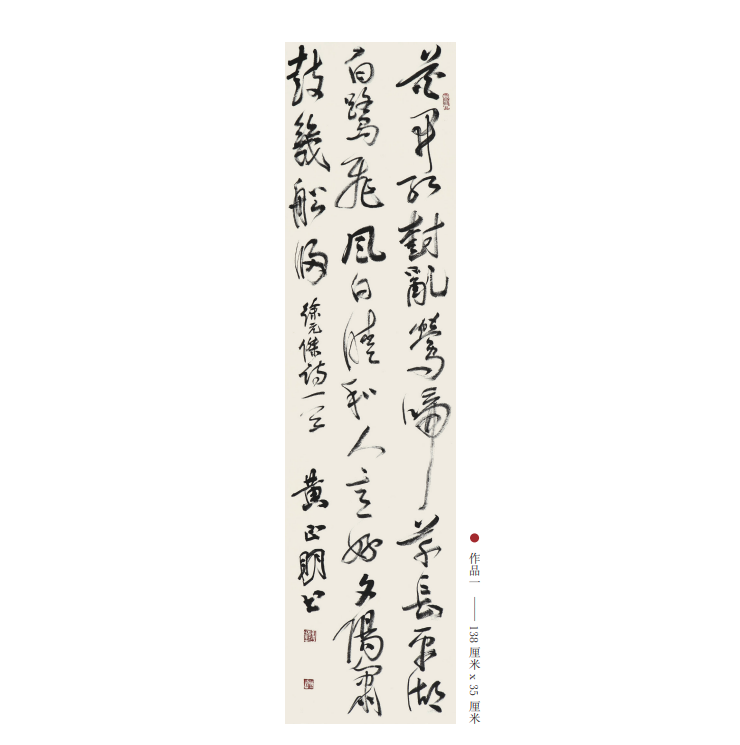 花開紅樹亂鶯啼草長平湖
白鷺飛風日晴和人意好夕陽簫
鼓幾船歸 徐元傑詩一首 黄正明书
作品一 —— 138 厘米 x 35 厘米